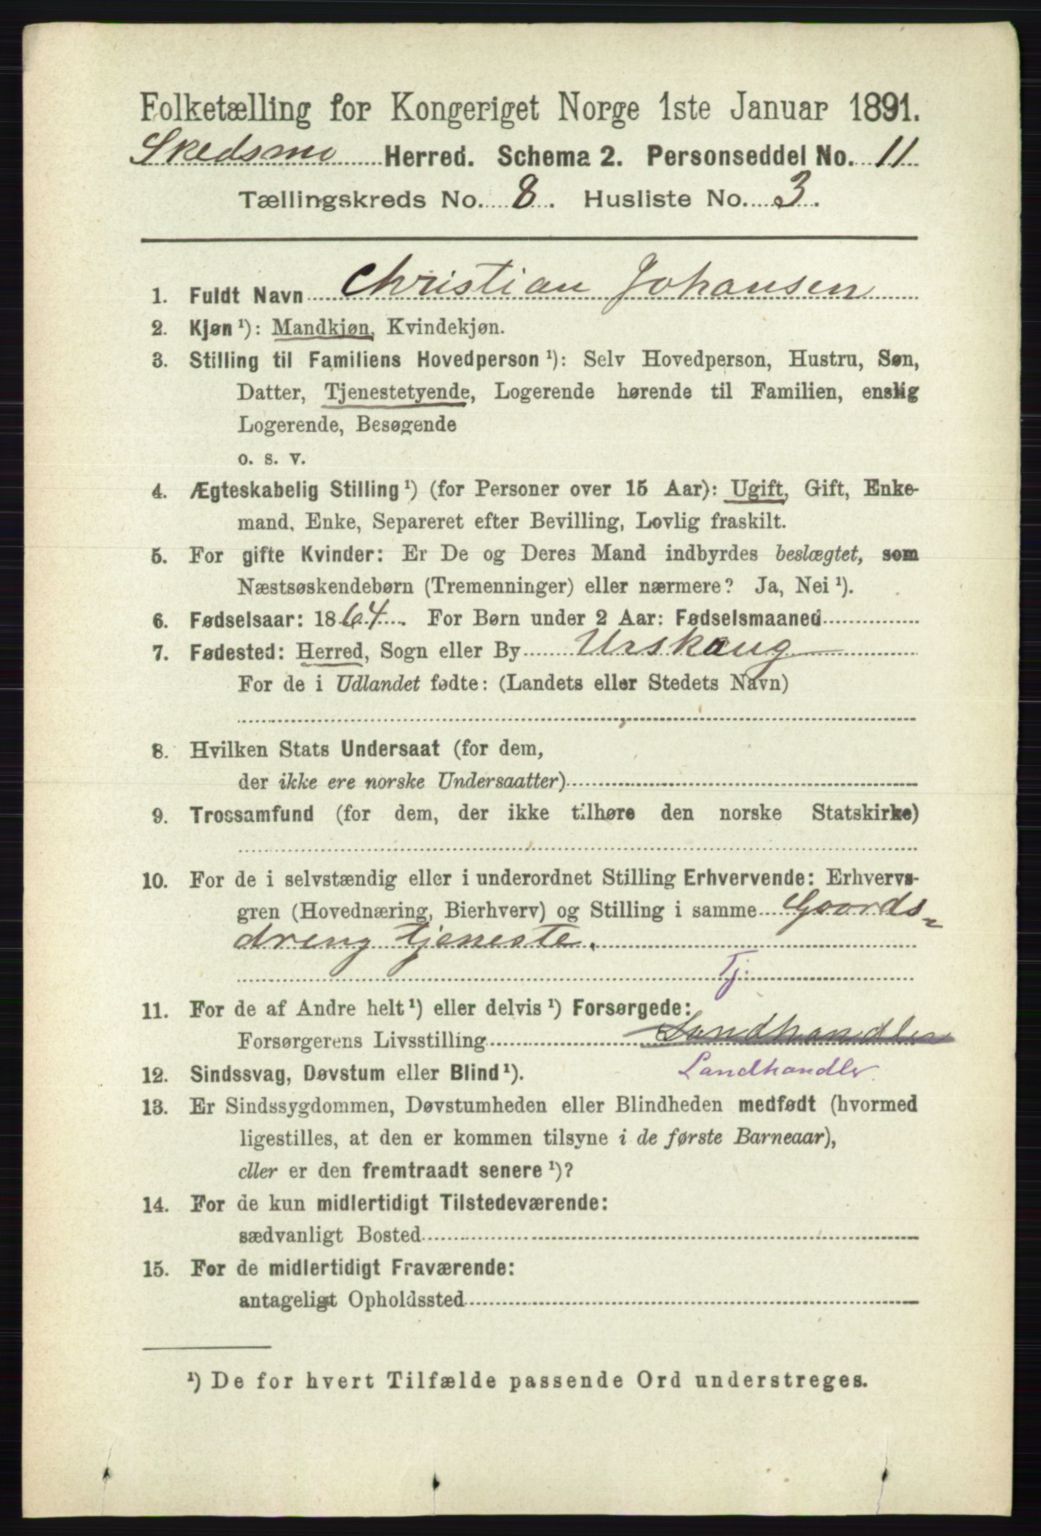 Folketælling for Kongeriget Norge 1ste Januar 1891.
Skedsmo Herred. Schema 2. Personseddel No. 11
Tællingskreds No. 8. Husliste No. 3.
1. Fuldt Navn Christian Johansen
2. Kjøn ¹): Mandkjøn, Kvindekjøn.
3. Stilling til Familiens Hovedperson ¹): Selv Hovedperson, Hustru, Søn,
Datter, Tjenestetyende, Logerende hørende til Familien, enslig
Logerende, Besøgende
o. s. v.
4. Ægteskabelig Stilling ¹) (for Personer over 15 Aar): Ugift, Gift, Enke-
mand, Enke, Separeret efter Bevilling, Lovlig fraskilt.
5. For gifte Kvinder: Er De og Deres Mand indbyrdes beslægtet, som
Næstsøskendebørn (Tremenninger) eller nærmere? Ja, Nei ¹).
6. Fødselsaar: 1864. For Børn under 2 Aar: Fødselsmaaned
7. Fødested: Herred, Sogn eller By Urskoug
For de i Udlandet fødte: (Landets eller Stedets Navn)
8. Hvilken Stats Undersaat (for dem,
der ikke ere norske Undersaatter)
9. Trossamfund (for dem, der ikke tilhøre den norske Statskirke)
10. For de i selvstændig eller i underordnet Stilling Erhvervende: Erhvervs-
gren (Hovednæring, Bierhverv) og Stilling i samme Gaards-
dreng tjeneste.
Tj.
11. For de af Andre helt ¹) eller delvis ¹) Forsørgede:
Forsørgerens Livsstilling Landhandler
12. Sindssvag, Døvstum eller Blind ¹). Landhandler
13. Er Sindssygdommen, Døvstumheden eller Blindheden medfødt (hvormed
ligestilles, at den er kommen tilsyne i de første Barneaar),
eller er den fremtraadt senere ¹)?
14. For de kun midlertidigt Tilstedeværende:
sædvanligt Bosted
15. For de midlertidigt Fraværende:
antageligt Opholdssted
¹) De for hvert Tilfælde passende Ord understreges.